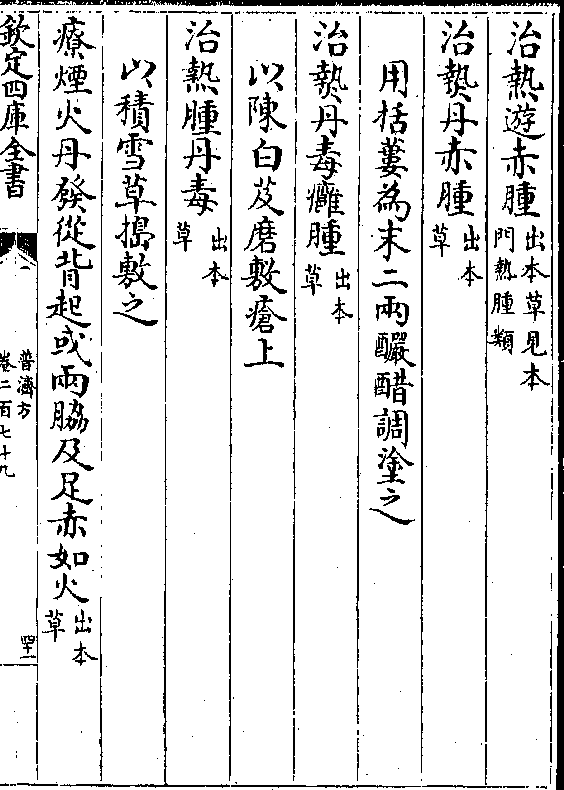 治熱遊赤腫出本草見本門熱腫類
治熱丹赤腫出本草
用括蔞為末二兩釅醋調塗之
治熱丹毒癰腫出本草
以陳白芨磨敷瘡上
治熱腫丹毒出本草
以積雪草搗敷之
療煙火丹發從背起或兩脇及足赤如火出本草
欽定四庫全書
普濟方
卷二百七十九
四十一